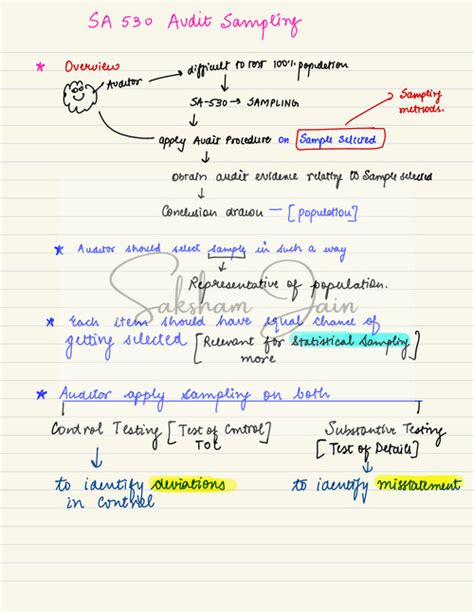 SA 530 Audit Sampling
* Overview
Auditor → difficult to test 100% population
SA-530 → SAMPLING
Sampling methods.
apply Audit Procedure on Sample Selected
Obtain audit evidence relating to Sample selected
Conclusion drawn — [population]
* Auditor should select sample in such a way
Representative of population.
Saksham Jain
* Each item should have equal chance of
getting selected [Relevant for Statistical Sampling]
more
* Auditor apply sampling on both
Control Testing [Test of Control]
TOC
Substantive Testing
[Test of Details]
to identify deviations
in Control
to identify misstatement